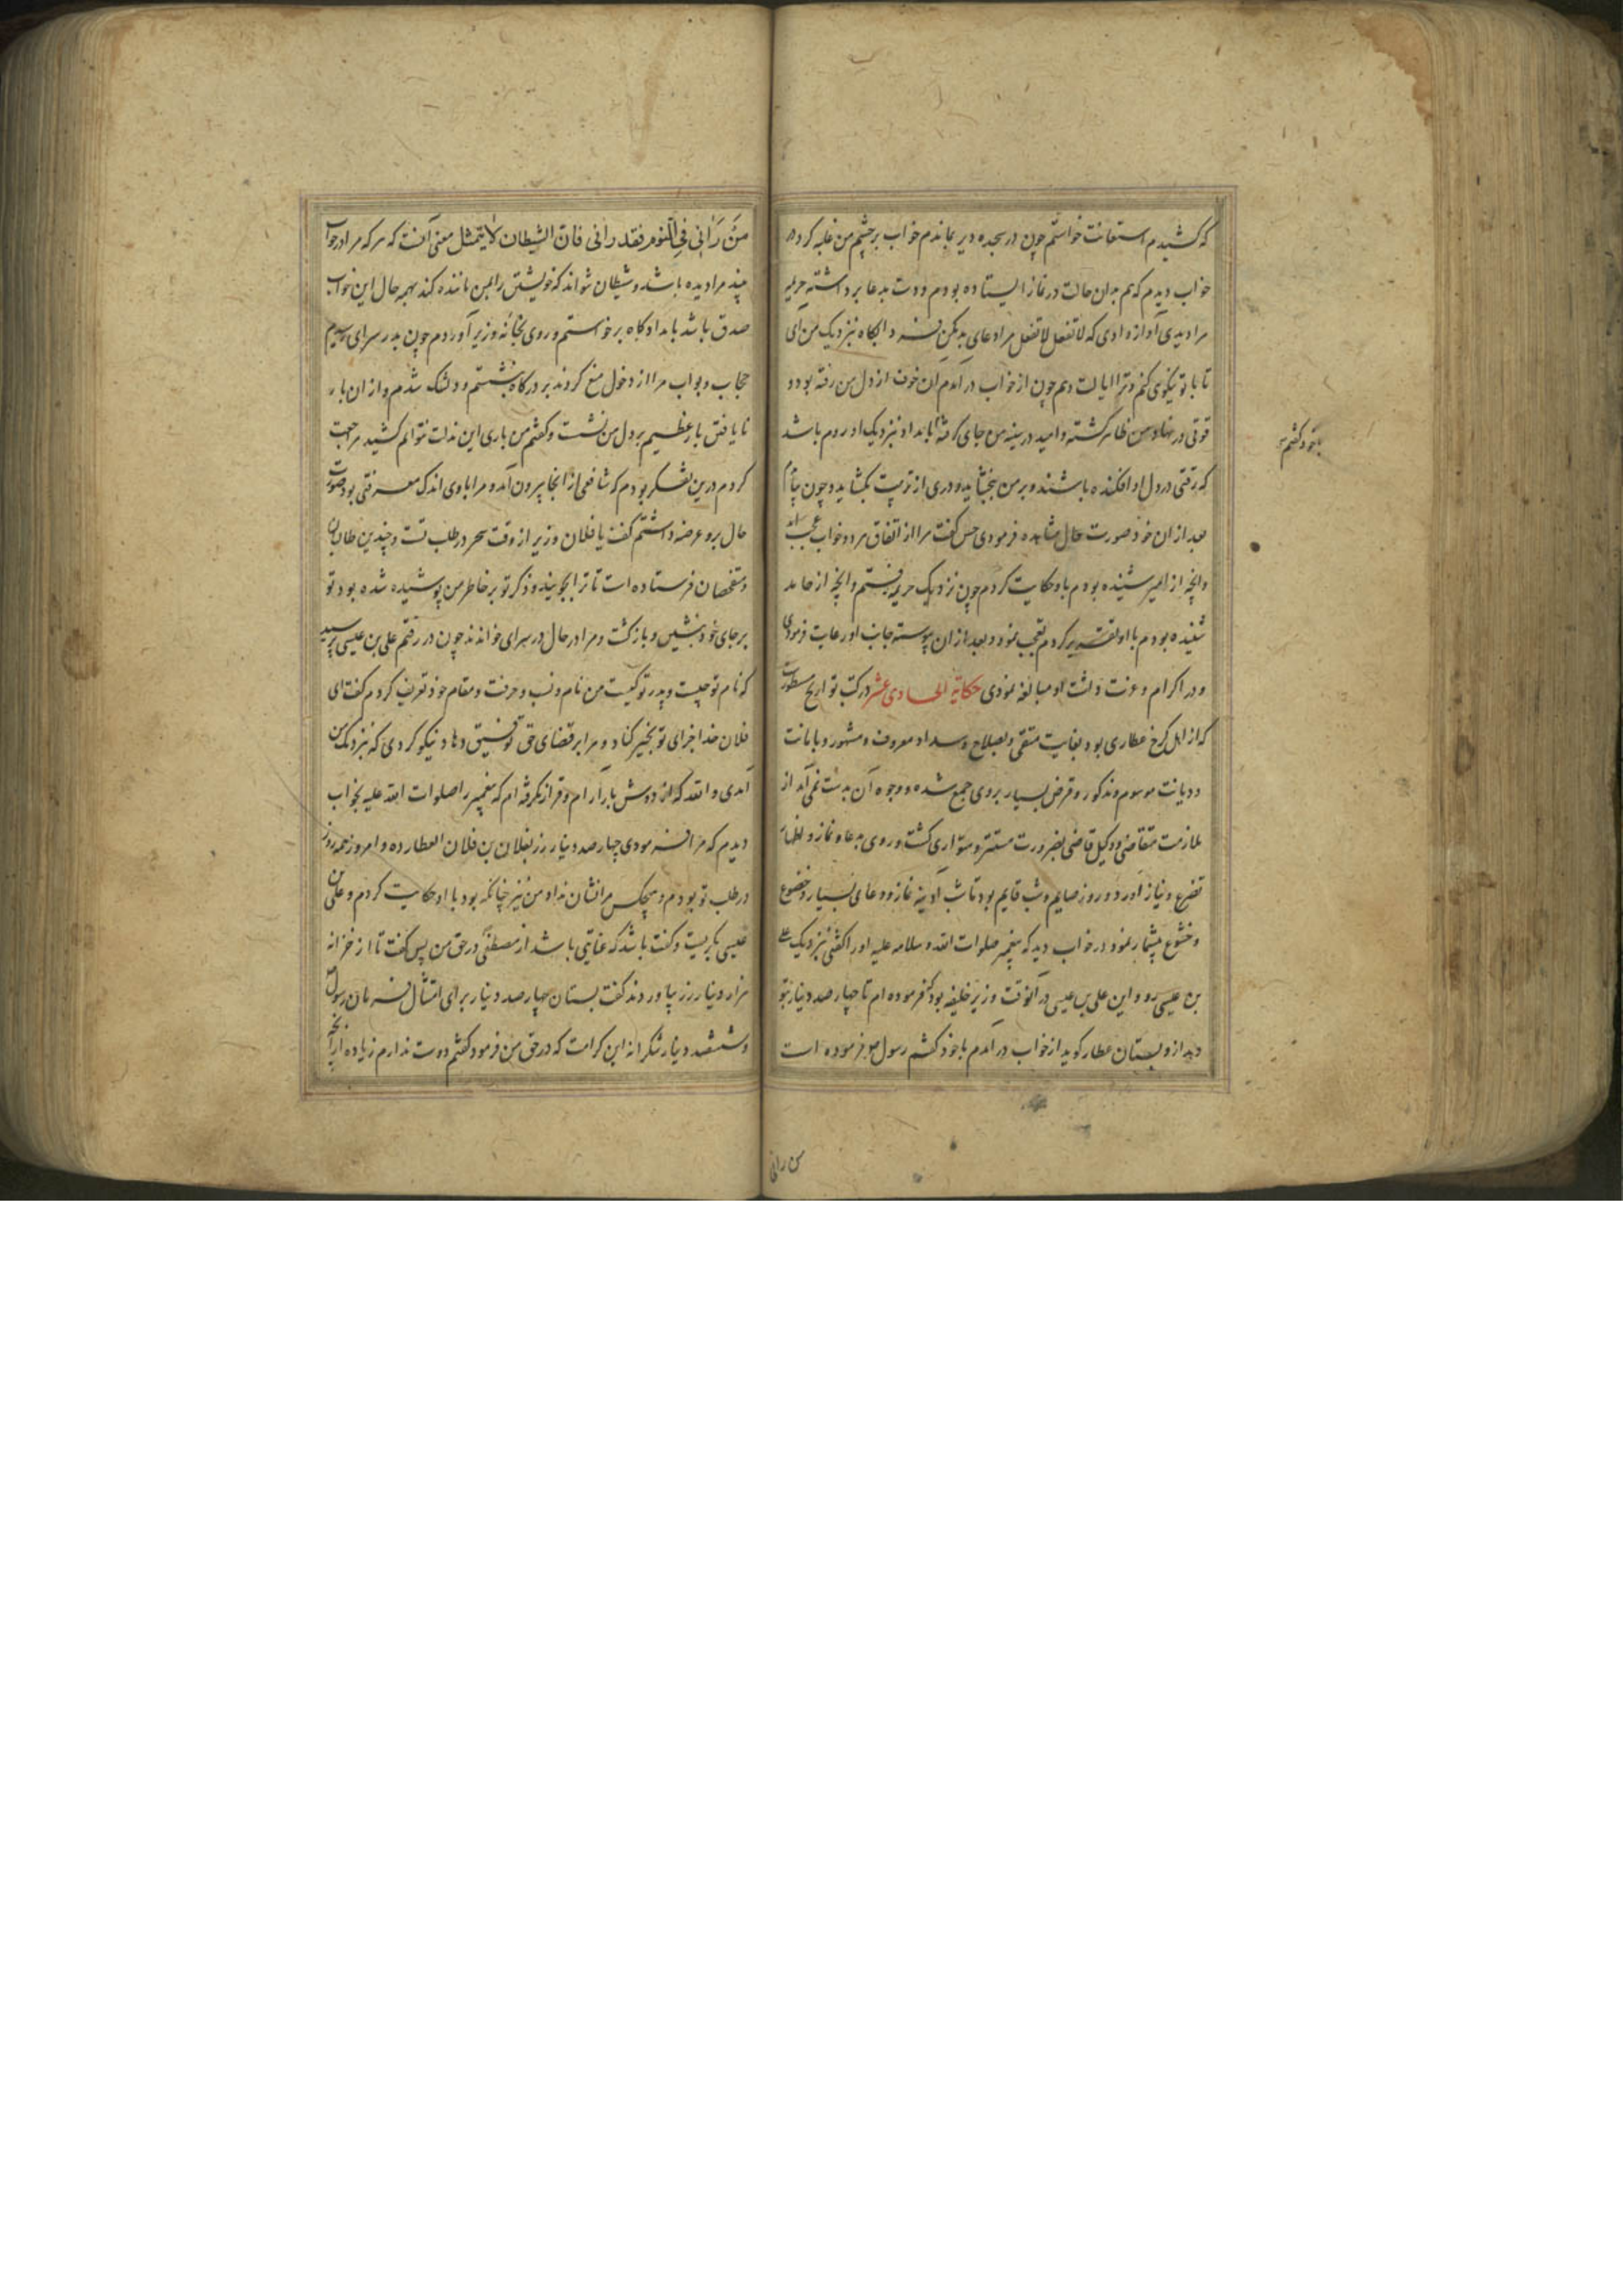 که کشیدم استعانت خواستم چون در سجده دیر بماندم خواب بر چشم من غلبه کرد در
خواب دیدم که هم بدان حالت در نماز ایستاده بودم و دست بدعا برداشته حریه
مرا دیدی آواز دادی که لا تفعل لا تفعل مرا دعای بد مکن فردا پکاه بنزدیک من آی
تا با تو نیکوی کنم و ترا ایالت دهم چون از خواب در آمدم آن خوف از دل من رفته بود و
قوتی در نهاد من ظاهر گشته و امید در سینه من جای گرفته بامداد بنزدیک او روم باشد
که رقتی در دل او افکنده باشند و بر من ببخشاید و دری از تربیت بگشاید و چون بیامدم
بعد از آن خود صورت حال مشاهده فرمودی حسن گفت مرا از اتفاق هر دو خواب عجب آمد
وانچه از امیر شنیده بودم باو حکایت کردم چون نزدیک حریه رفتم وانچه از حامد
شنیده بودم با او تقریر کردم تعجب نمود و بعد از آن پیوسته جانب او رعایت فرمودی
و در اکرام و عزت داشت او مبالغه نمودی حکایة الحادی عشر در کتب تواریخ مسطورست
که از اهل کرخ عطاری بود بغایت متقی و بصلاح و سداد معروف و مشهور و بامانت
و دیانت موسوم و مذکور و قرض بسیار بروی جمع شده و وجوه آن بدست نمی آمد از
ملازمت متقاضی و وکیل قاضی بضرورت مستتر و متواری گشت و روی بدعا و نماز و اظهار
تضرع و نیاز آورد و روز صایم و شب قایم بود تا شب آدینه نماز و دعای بسیار و خضوع
و خشوع بیشمار نمود در خواب دید که پیغمبر صلوات الله و سلامه علیه او را گفتی بنزدیک علی
بن عیسی رو و این علی بن عیسی در آنوقت وزیر خلیفه بود که فرموده ام تا چهار صد دینار بتو
دهد ازو بستان عطار گوید از خواب در آمدم با خود گفتم رسول ص فرموده است
با خود گفتم
من رانی
من رانی فی النوم فقد رانی فان الشیطان لا یتمثل معنی آنست که هر که مرا در خواب
بیند مرا دیده باشد و شیطان نتواند که خویشتن را بمن ماننده کند بهمه حال این خواب
صدق باشد بامداد پکاه برخواستم و روی بخانه وزیر آوردم چون بدر سرای رسیدم
حجاب و بواب مرا از دخول منع کردند بر درگاه بنشستم و دلتنگ شدم و از آن بار
نا یافتن بار عظیم بر دل من نشست و گفتم من باری این مذلت نتوانم کشید مراجعت
کردم درین تفکر بودم که شافعی از آنجا بیرون آمد و مرا با وی اندک معرفتی بود صورت
حال برو عرضه داشتم گفت یا فلان وزیر از وقت سحر در طلب تست و چندین طالبان
و متفحصان فرستاده است تا ترا بجویند و ذکر تو بر خاطر من پوشیده شده بود تو
بر جای خود بنشین و بازگشت و مرا در حال در سرای خواندند چون در رفتم علی بن عیسی پرسید
که نام تو چیست و پدر تو کیست من نام و نسب و حرفت و مقام خود تعریف کردم گفت ای
فلان خدا جزای تو بخیر کناد و مرا بر قضای حق تو توفیق دهاد نیکو کردی که بنزدیک من
آمدی والله که از دوش باز آرام و قرار نگرفته ام که پیغمبر را صلوات الله علیه بخواب
دیدم که مرا فرمودی چهار صد دینار زر بفلان بن فلان العطار ده و امروز همه روز
در طلب تو بودم و هیچکس مرا نشان نداد من نیز چنانکه بود با او حکایت کردم و علی بن
عیسی بگریست و گفت باشد که عنایتی باشد از مصطفی در حق من پس گفت تا از خزانه
هزار دینار زر بیاوردند گفت بستان چهار صد دینار برای امتثال فرمان رسول
و ششصد دینار شکرانه این کرامت که در حق من فرمود گفتم دوست ندارم زیاده از آنچه